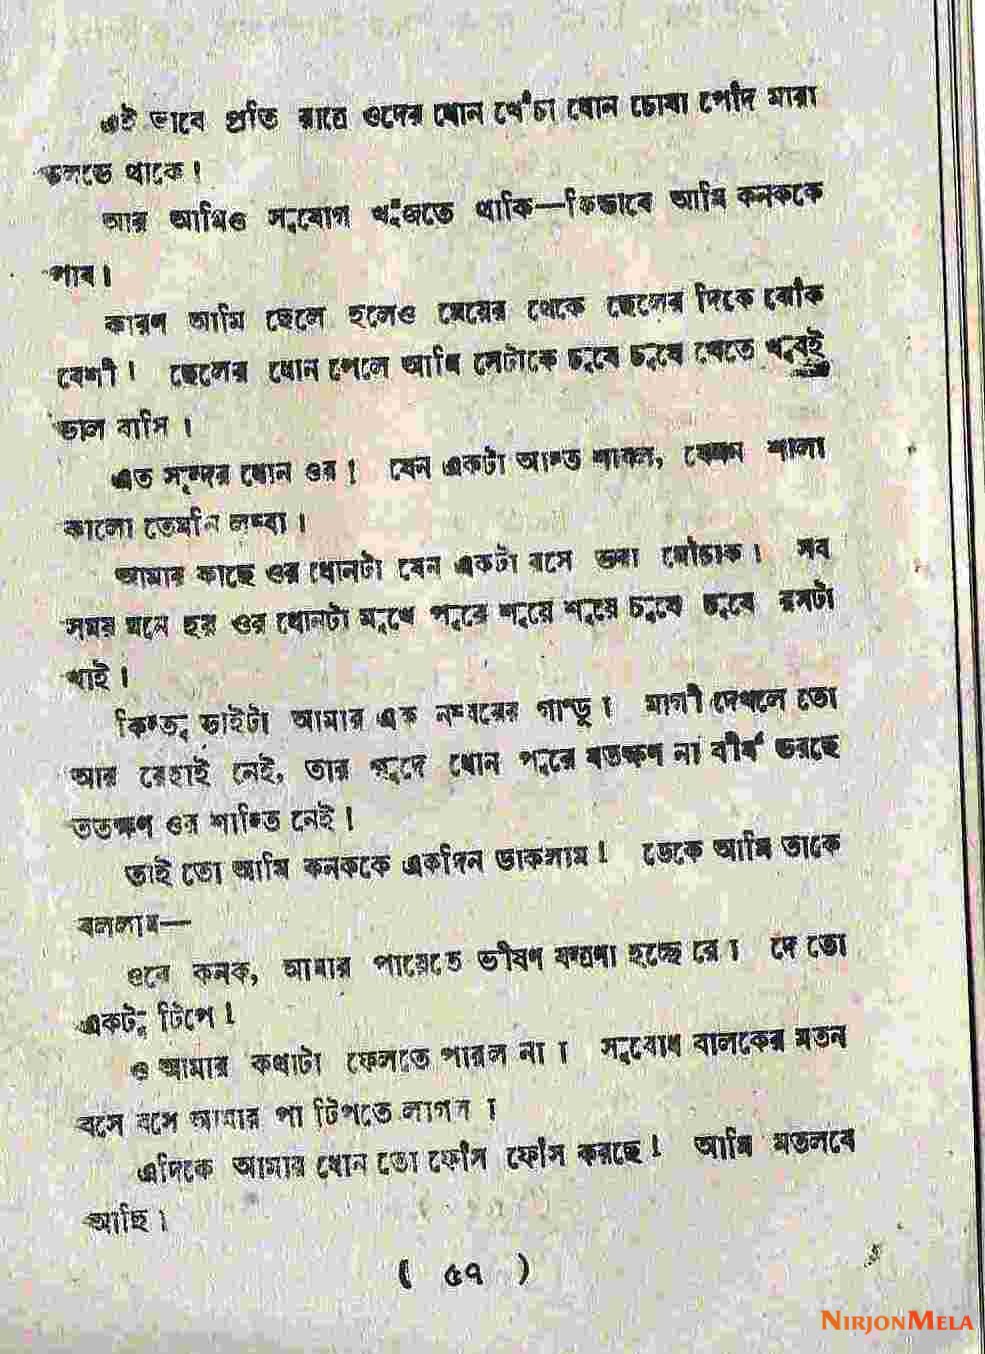 এই ভাবে প্রতি রাত্রে ওদের ধোন খেঁচা ধোন চোষা পোঁদ মারা
চলতে থাকে।
আর আমিও সুযোগ খুঁজতে থাকি—কিভাবে আমি কনককে
পাব।
কারণ আমি ছেলে হলেও মেয়ের থেকে ছেলের দিকে ঝোঁক
বেশী। ছেলের ধোন পেলে আমি সেটাকে চুষে চুষে খেতে খুবই
ভাল বাসি।
এত সুন্দর ধোন ওর! যেন একটা আস্ত শাবল, যেমন শালা
কালো তেমনি লম্বা।
আমার কাছে ওর ধোনটা যেন একটা রসে ভরা মৌচাক। সব
সময় মনে হয় ওর ধোনটা মুখে পুরে শুয়ে শুয়ে চুষে চুষে রসটা
খাই।
কিন্তু ভাইটা আমার এক নম্বরের গান্ডু। মাগী দেখলে তো
আর রেহাই নেই, তার গুদে ধোন পুরে যতক্ষণ না বীর্য ভরছে
ততক্ষণ ওর শান্তি নেই।
তাই তো আমি কনককে একদিন ডাকলাম। ডেকে আমি তাকে
বললাম—
ওরে কনক, আমার পায়েতে ভীষণ যন্ত্রণা হচ্ছে রে। দে তো
একটু টিপে।
ও আমার কথাটা ফেলতে পারল না। সুবোধ বালকের মতন
বসে বসে আমার পা টিপতে লাগল।
এদিকে আমার ধোন তো ফোঁস ফোঁস করছে। আমি মতলবে
আছি।
( ৫৭ )
NIRJONMELA